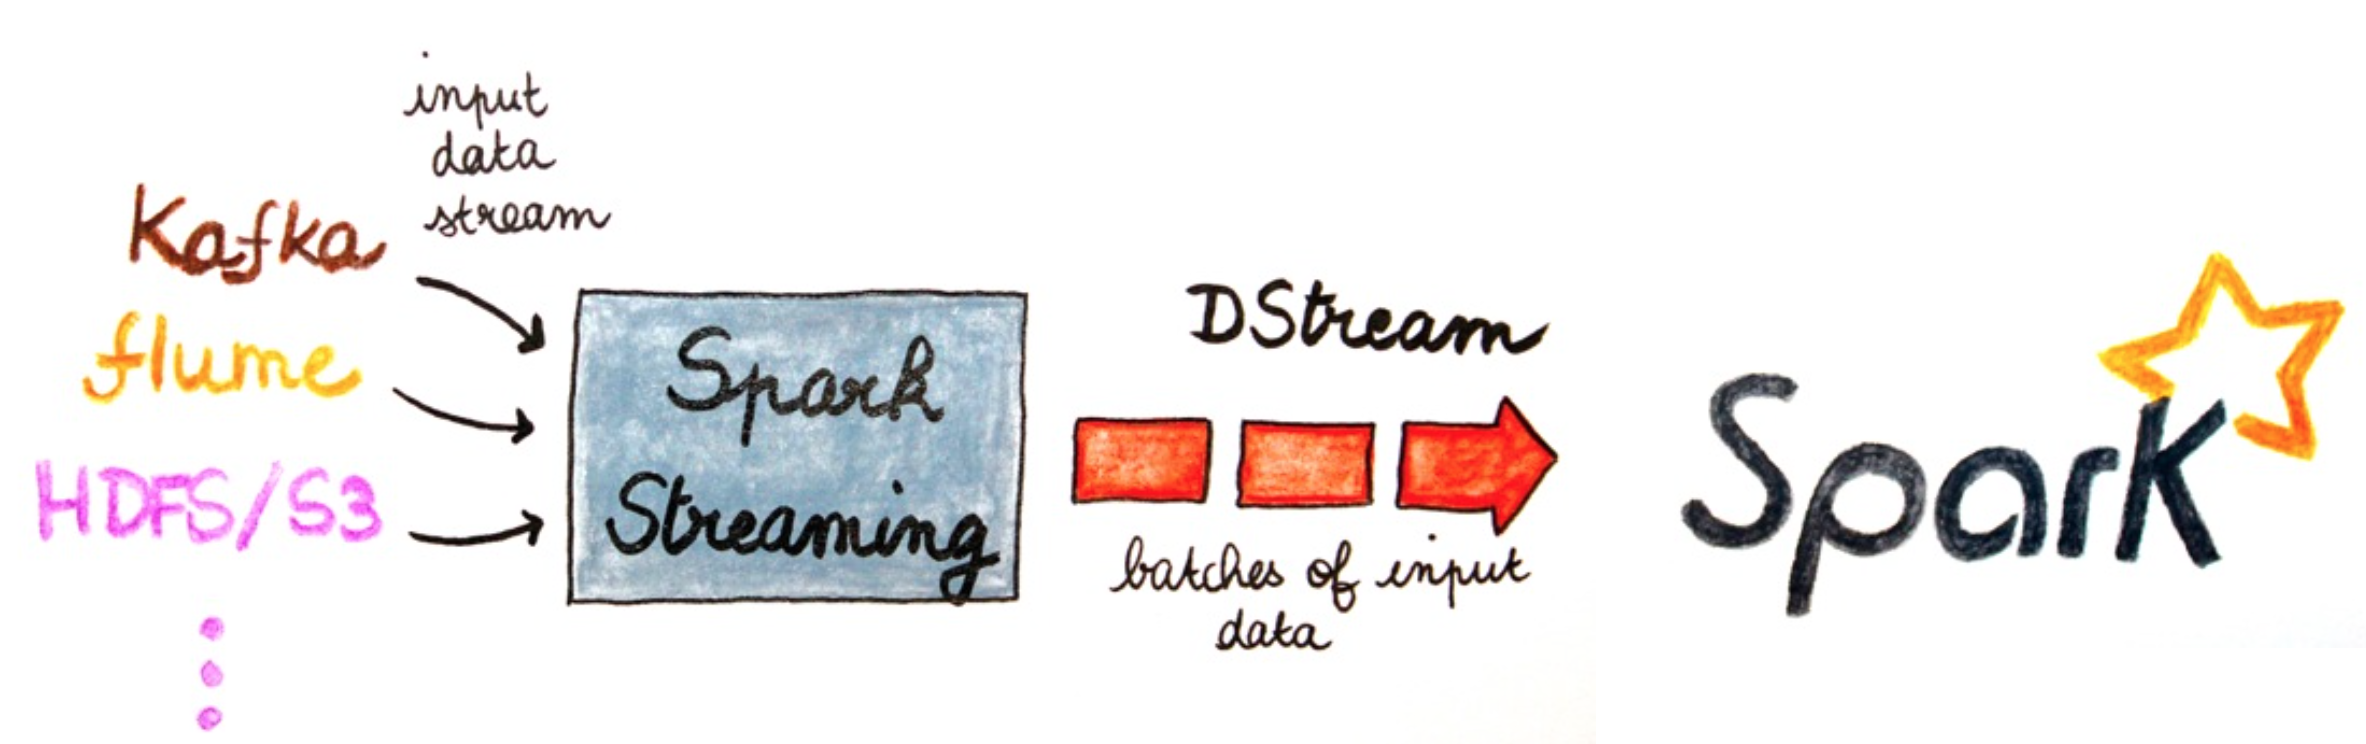 input
data
stream
Kafka
flume
HDFS/S3
Spark
Streaming
DStream
batches of input
data
Spark